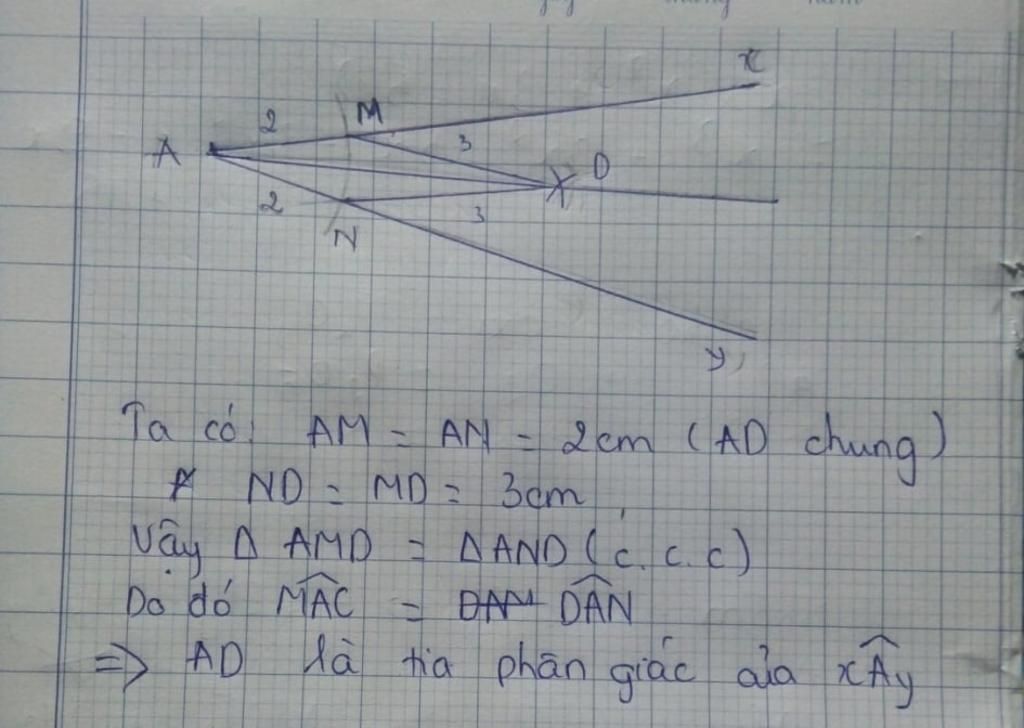 x
2 M
A 3 D
2 3
N
y
Ta có: AM = AN = 2cm (AD chung)
ND = MD = 3cm
Vậy Δ AMD = Δ AND (c.c.c)
Do đó M̂AC = DAN DÂN
=> AD là tia phân giác của xÂy